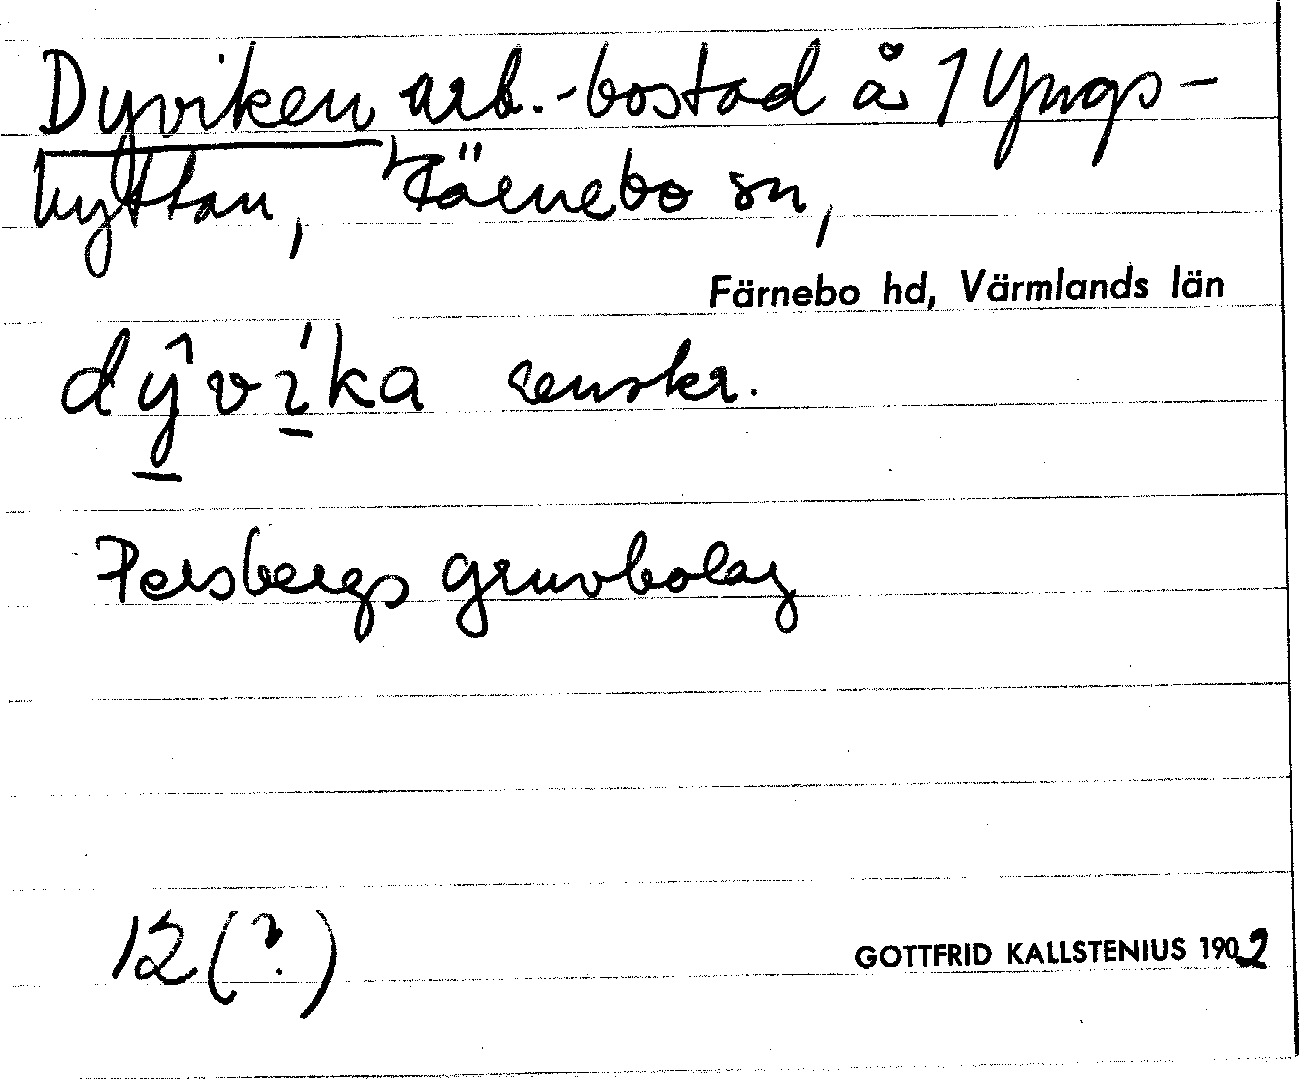 Dyviken arb.-bostad å 1 Yngs-
hyttan, Färnebo sn,
Färnebo hd, Värmlands län
dŷvíka renskr.
Persbergs gruvbolag
12 (?)
GOTTFRID KALLSTENIUS 1902